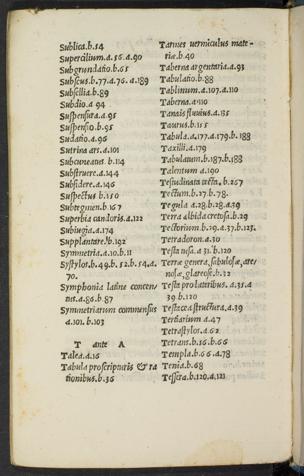 Sublica.b.54
Supercilium.a.56.a.90
Subgrundatio.b.65
Subscus.b.77.a.76.a.189
Subsellia.b.89
Subdio.a 94
Suspensura.a.95
Suspensio.b.95
Sudatio.a.96
Sutrina ars.a.101
Subcuneatus. b.114
Substruere.a.144
Subsidere.a.146
Suspectus.b.150
Subtegmen.b.167
Superbia candoris.a.122
Subiugia.a.174
Supplantare.b.192
Symmetria.a.10.b.11
Systylos.b.49.b.52.b.54.a.
70.
Symphonia latine concen
tus.a.86.b.87
Symmetriarum commensus
a.101.b.103
T ante A
Talea.a.16
Tabula proscripturis & ra
tionibus.b.36
Tarmes vermiculus mate-
riæ.b.40
Taberna argentaria.a.93
Tabulatio.b.88
Tablinum.a.107.a.110
Taberna.a.110
Tanais fluuius.a.135
Taurus.b.155
Tabula.a.177.a.179.b.188
Taxilli.a.179
Tabulatum.b.187.b.188
Talentum a.190
Testudinata tecta. b.267
Tectum.b.27.b.78.
Tegula a.28.b.28.a.39
Terra albida cretosa.b.29
Tectorium.b.29.a.37.b.123.
Tetradoron.a.30
Testa usa.a 31.b.120
Terræ genera, sabulosæ, are
nosæ, glareosæ.b.32
Testa pro lateribus.a.35.a
39.b.120
Testacea structura.a.39
Tertiarium.a.47
Tetrastylos.a.62
Tetrans.b.56.b.66
Templa.b.66.a.78
Tenia.b.68
Tessera.b.120.a.121